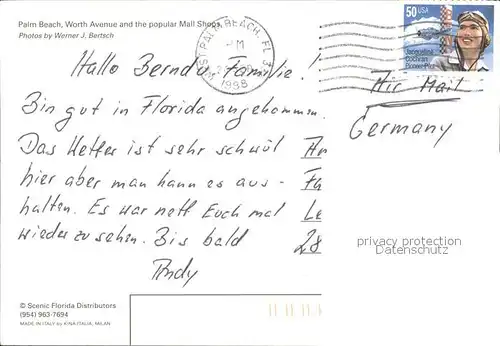 Palm Beach, Worth Avenue and the popular Mall Shops.
Photos by Werner J. Bertsch
WEST PALM BEACH, FL
PM
1998
50 USA
Jacqueline
Cochran
Pioneer Pilot
Hallo Bernd u. Familie!
Air Mail
Germany
Bin gut in Florida angekommen.
Das Wetter ist sehr schwül
hier aber man kann es aus-
halten. Es war nett Euch mal
wieder zu sehen. Bis bald
Andy
Le
28
privacy protection
Datenschutz
© Scenic Florida Distributors
(954) 963-7694
MADE IN ITALY by KINA ITALIA, MILAN